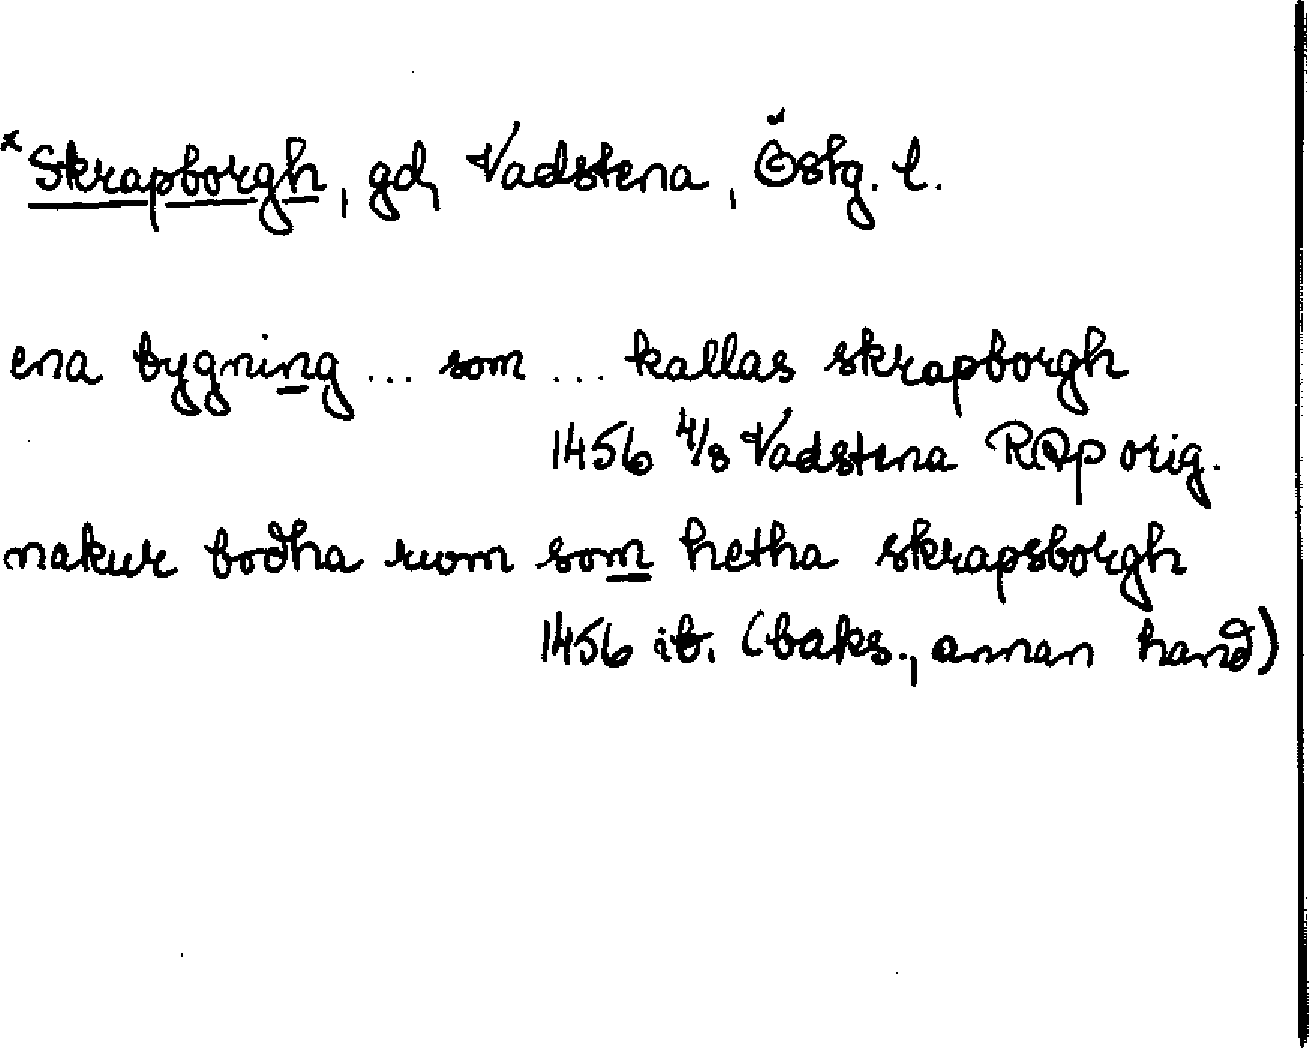 *Skrapborgh, gd, Vadstena, Östg. l.
ena bygning ... som ... kallas skrapborgh
1456 4/8 Vadstena RAp orig.
nakur bodha rwm som hetha skrapsborgh
1456 ib. (baks., annan hand)